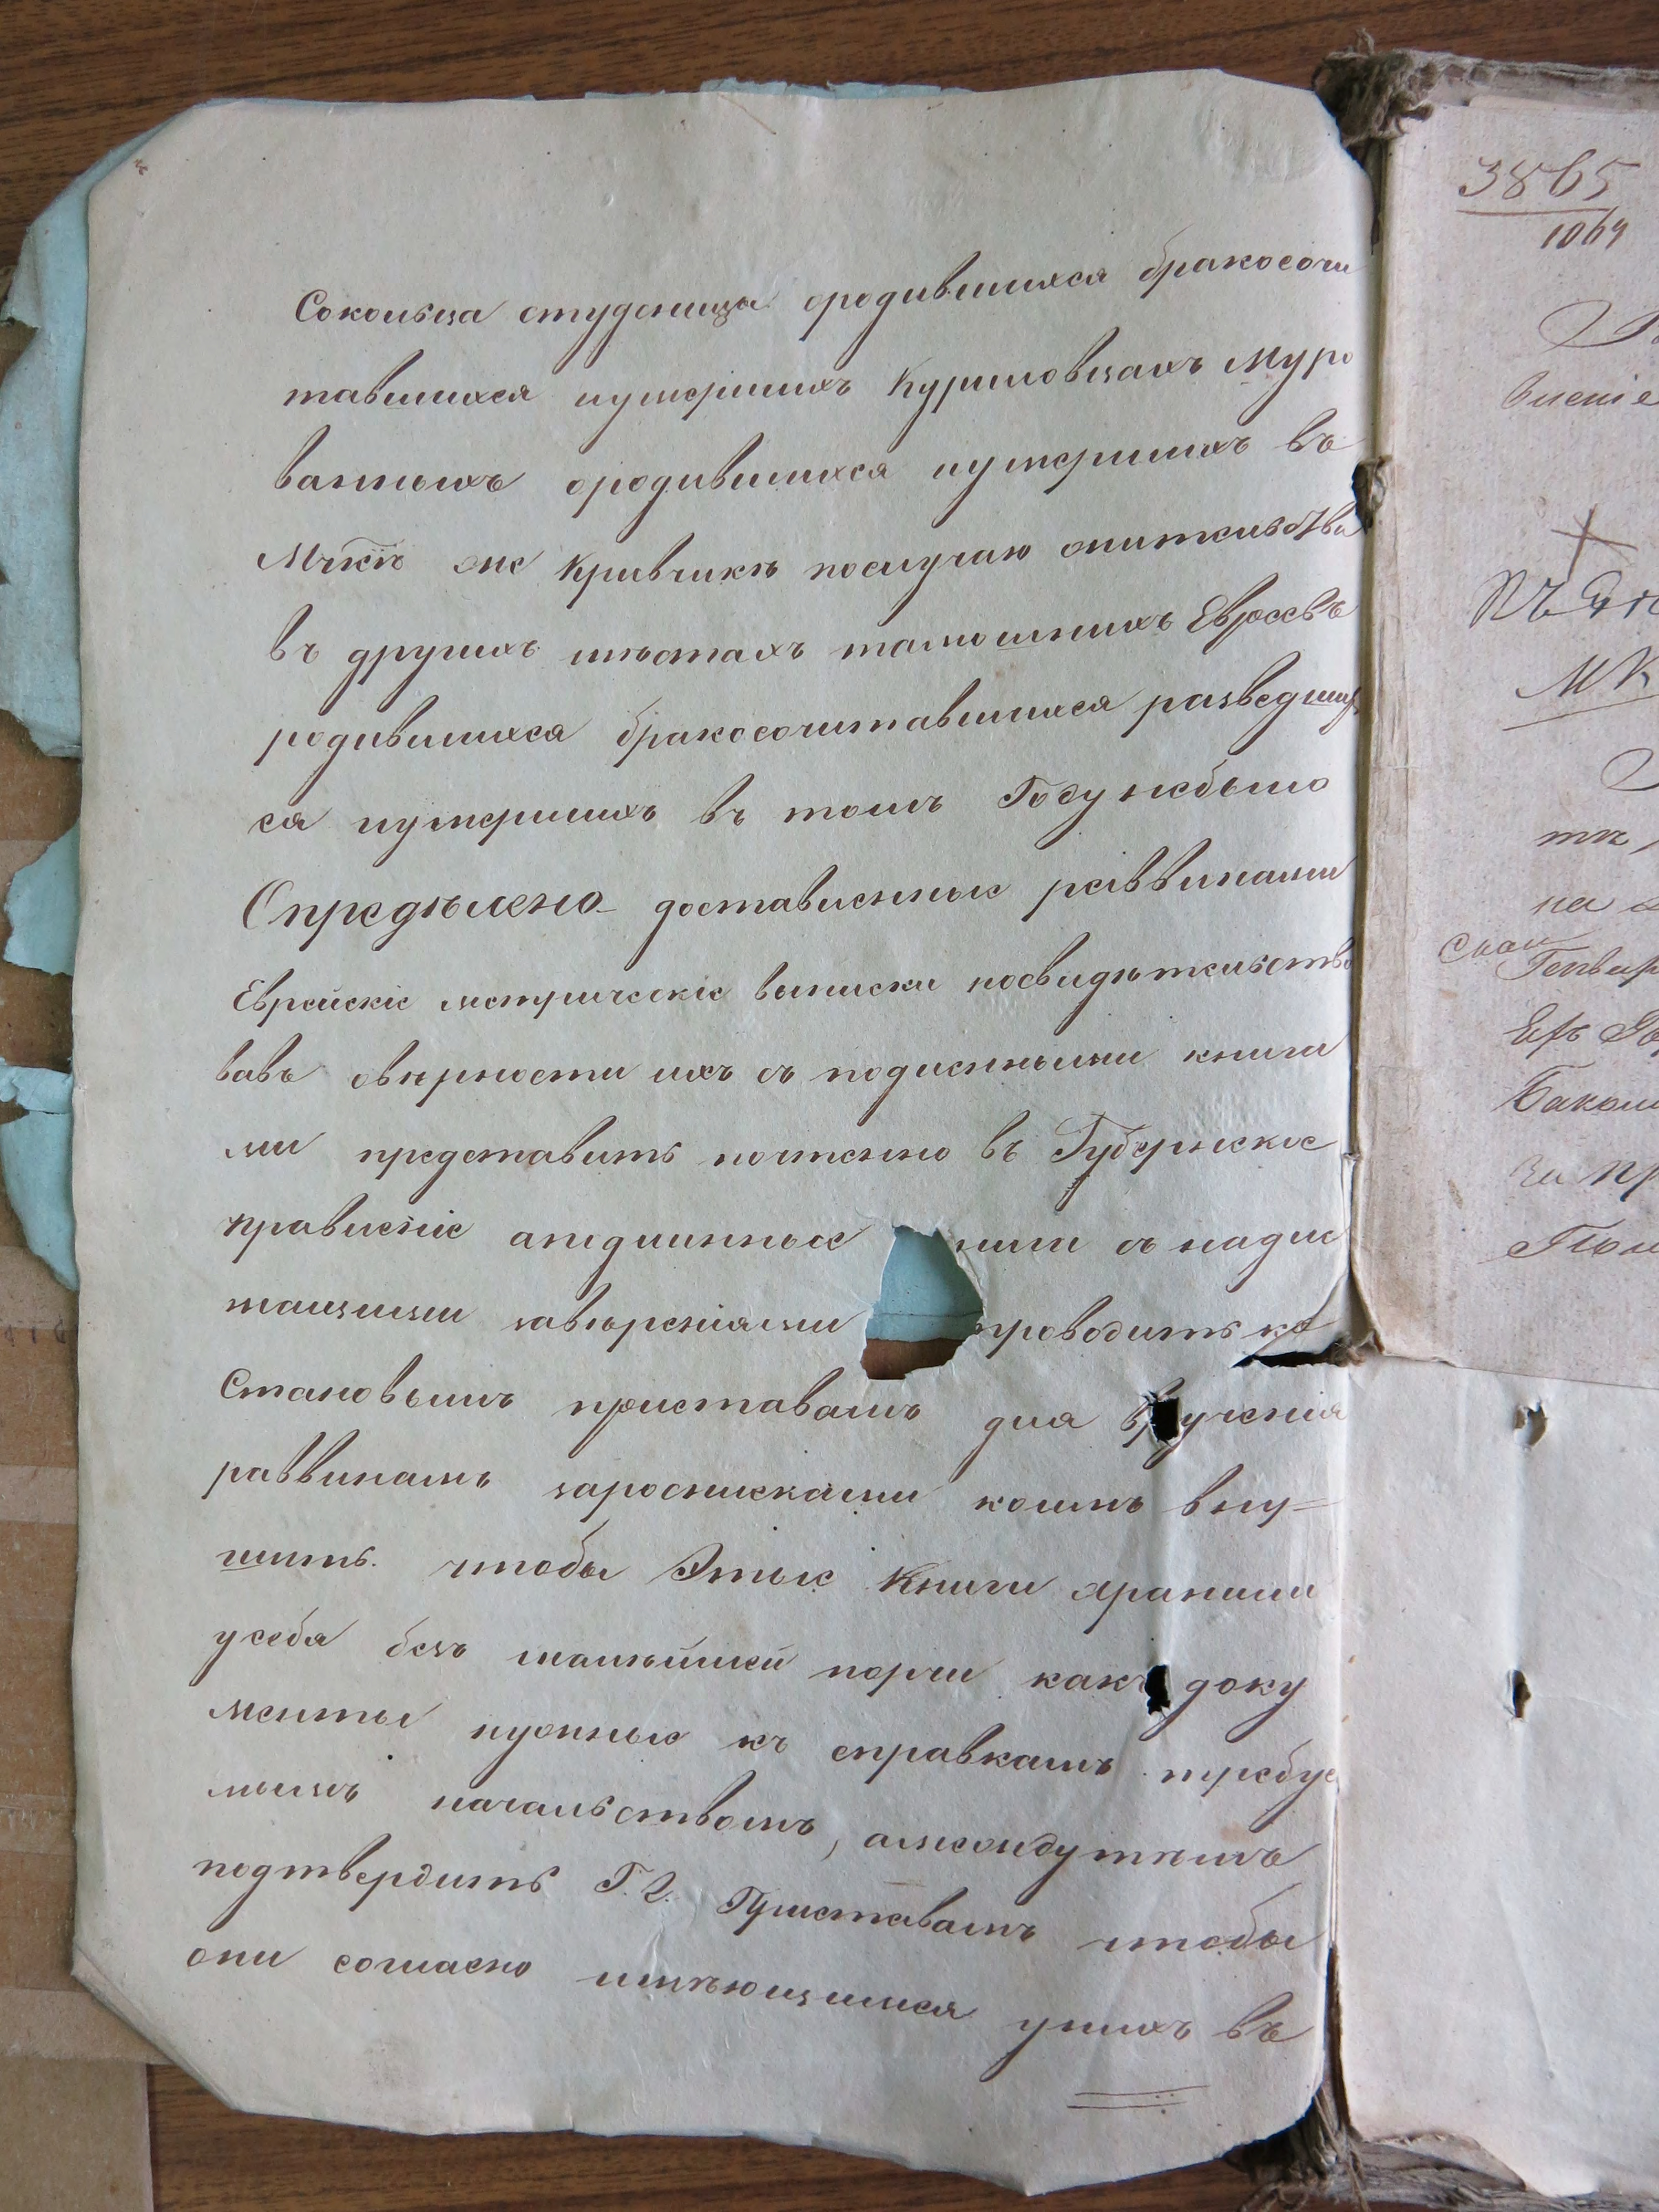 Сокольца студеница ородившихся бракосочи
тавшихся иумершихъ Куриловцахъ Муро
ванныхъ ородившихся иумершихъ въ
Мчкѣ же Кривчикъ послучаю
въ другихъ мѣстахъ тамошнихъ Евреевъ
родившихся бракосочитавшихся разведших
ся иумершихъ въ томъ Году небыло
Опредѣлено доставленные раввинами
Еврейскіе метрическіе выписки посвидѣтельство
вавъ овѣрности ихъ съ подленными книга
ми представить почтенно въ Губернское
правленіе аподлинные ниги съ надле
жащими завѣреніями проводить ко
Становымъ приставамъ для вручения
раввинамъ заросписками коимъ вну=
шить чтобы Этые Книги хранили
усебя безъ малѣйшей порчи какъ доку
менты нужные къ справкамъ требуе
мымъ начальствомъ,
подтвердить Г.Г. Приставамъ чтобы
они согласно имѣющимся унихъ въ
3865
1064
вленіе
МК
на
Генвар
за пр